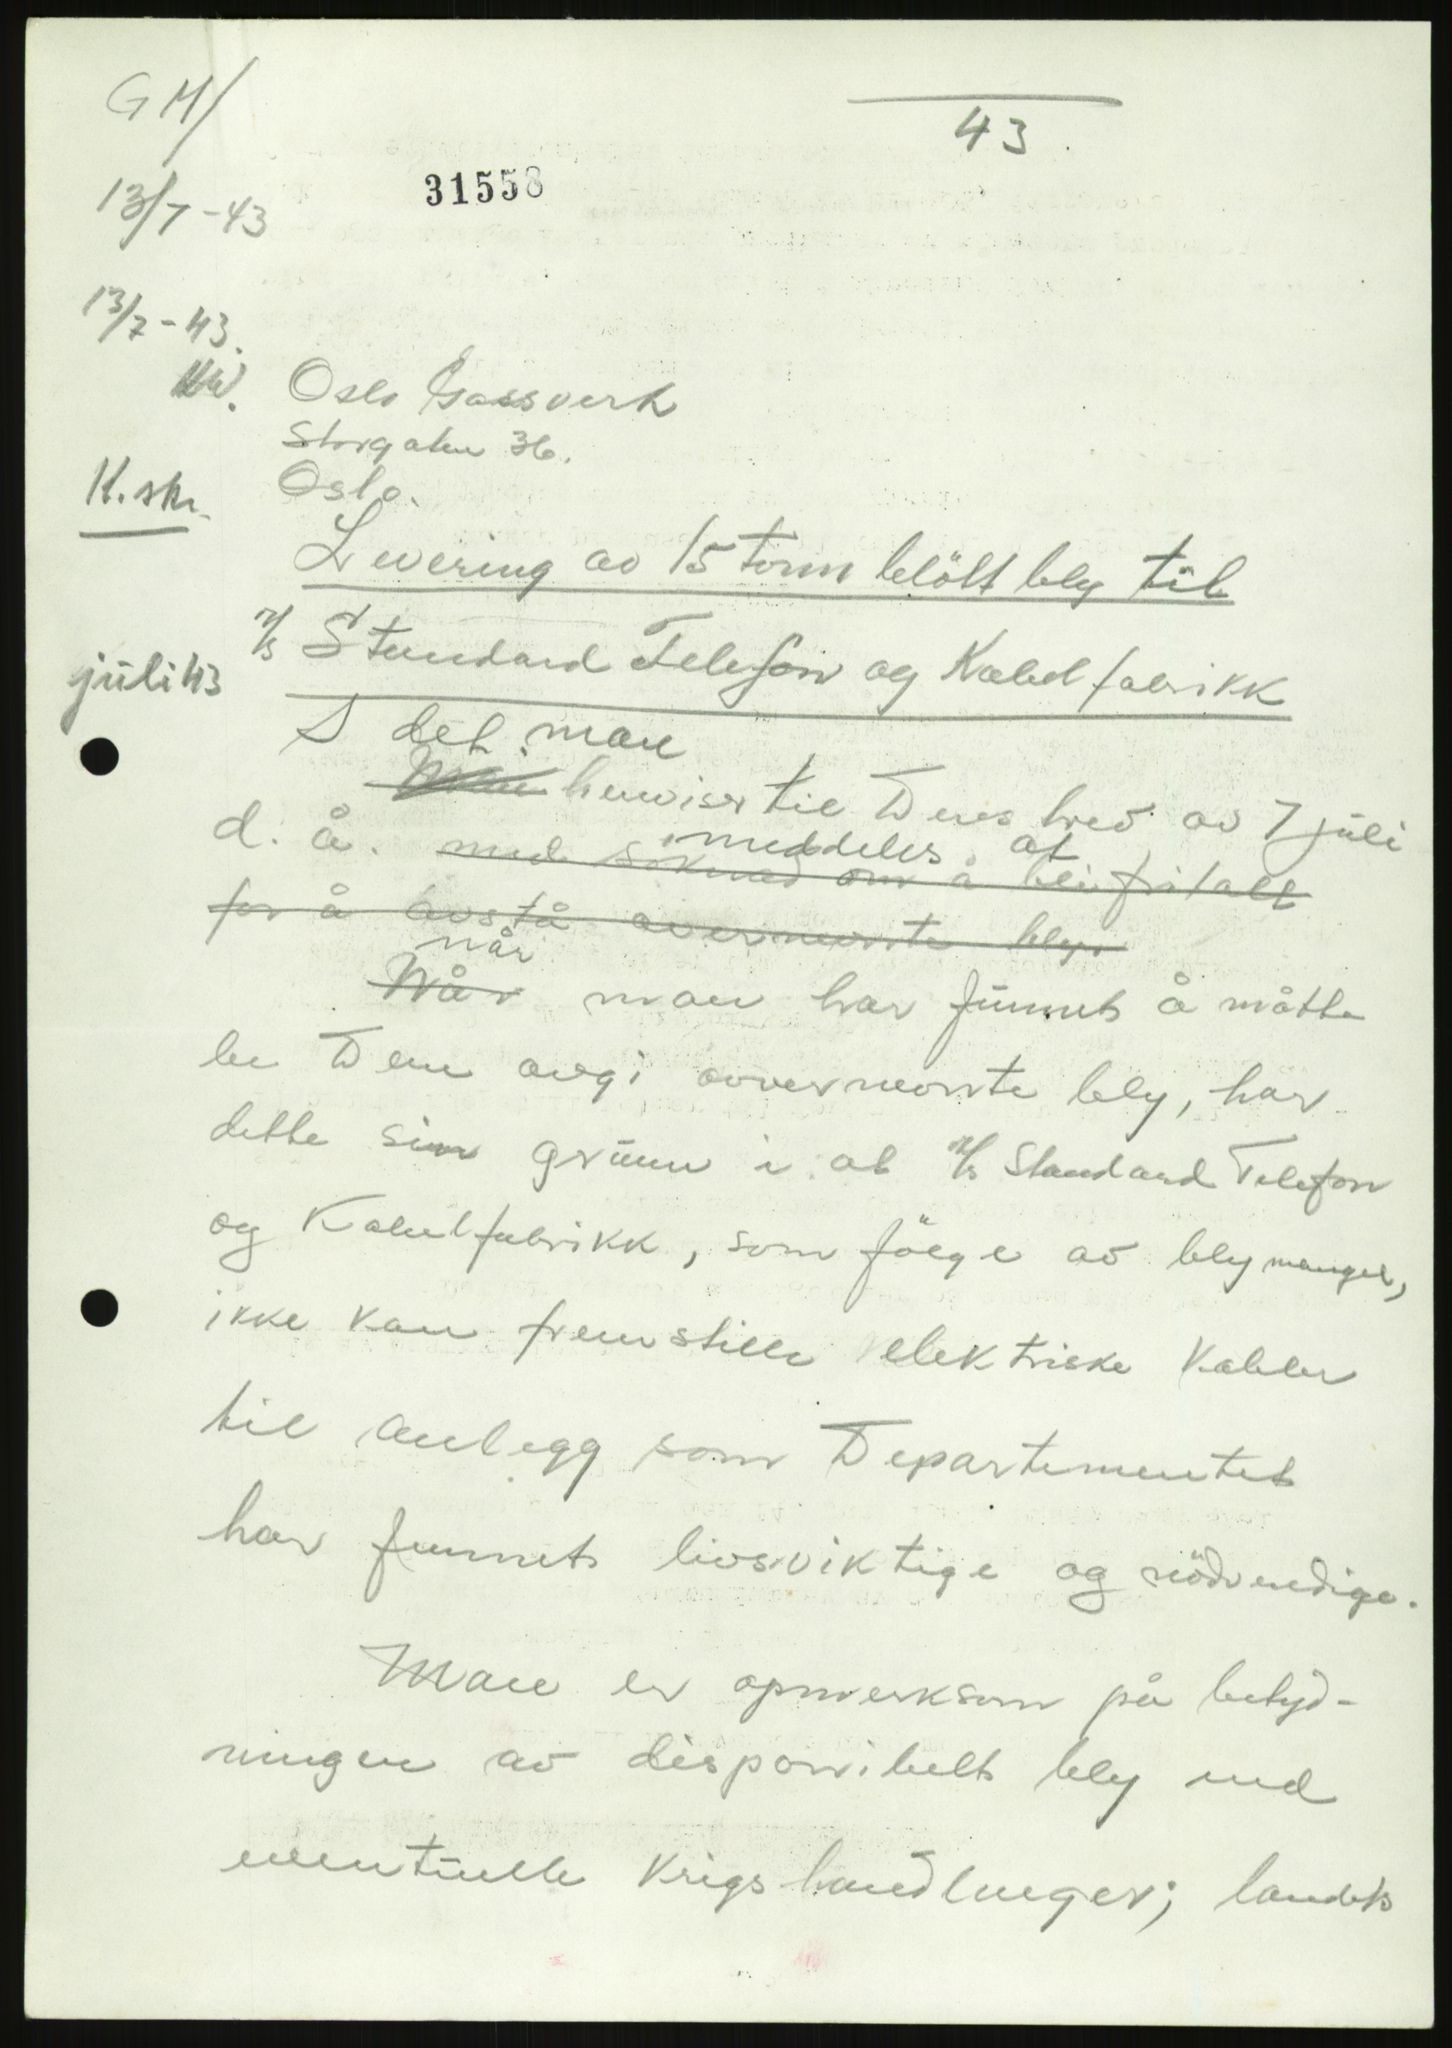 GM/
43
31558
13/7-43
13/7-43.
Oslo Gassverk
Storgaten 36.
Oslo.
K.skr.
Levering av 15 tonn blött bly til
A/S Standard Telefon og Kabelfabrikk
juli 43
I det man
Man henviser til Deres brev av 7 juli
meddeles at
d. å. med söknad om å bli fritatt
for å avstå overnevnte bly.
når
Når man har funnet å måtte
be Dem avgi ovvernevnte bly, har
dette sin grunn i at A/S Standard Telefon
og Kabelfabrikk, som fölge av blymangel,
ikke kan fremstille elektriske kabler
til anlegg som Departementet
har funnet livsviktige og nödvendige.
Man er opmerksom på betyd-
ningen av disponibelt bly ved
eventuelle krigshandlinger; landets